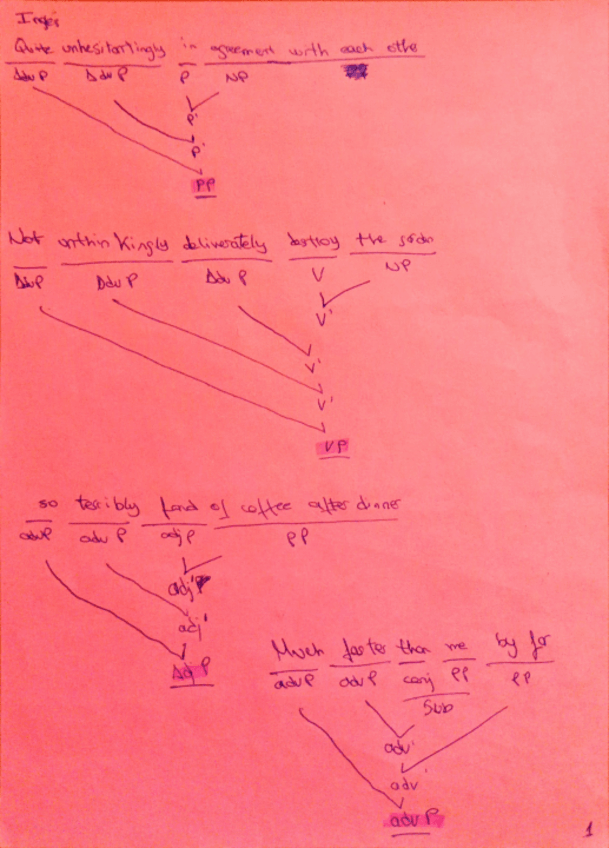 Inglés
Quite unhesitantingly in agreement with each othe
AdvP AdvP P NP
P'
P'
PP
Not unthinkingly deliverately destroy the
AdvP AdvP AdvP V NP
V'
V'
V'
VP
so terribly fond of coffee after dinner
advP advP adjP PP
adj'
adj'
AdjP
Much faster than me by far
advP advP conj PP PP
Sub
adv'
adv'
advP
1